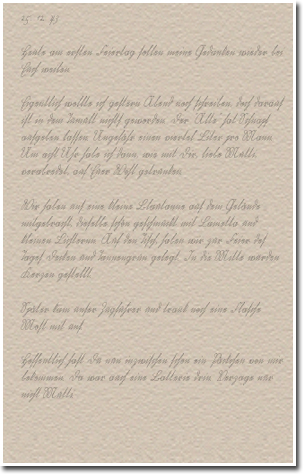 25. 12. 43
Heute am ersten Feiertag sollen meine Gedanken wieder bei
Euch weilen.
Eigentlich wollte ich gestern Abend noch schreiben, doch daraus
ist in dem Tumult nichts geworden. Der "Alte" hat Schnaps
ausgeben lassen. Ungefähr einen viertel Liter pro Mann.
Um acht Uhr habe ich dann, wie mit Dir, liebe Mutti,
verabredet, auf Euer Wohl getrunken.
Wir haben auch eine kleine aus dem Gelände
mitgebracht. Dieselbe schön geschmückt mit Lametta und
kleinen Lichtern. Auf den Tisch haben wir zur Feier des
Tages, Decken und Tannengrün gelegt. In die Mitte wurden
Kerzen gestellt.
Später kam unser Zugführer und trank noch eine Flasche
Wein mit uns.
Hoffentlich hast Du nun inzwischen schon ein Päckchen von mir
bekommen. Da war auch eine Lotterie drin. Verzage nur
nicht Mutti.